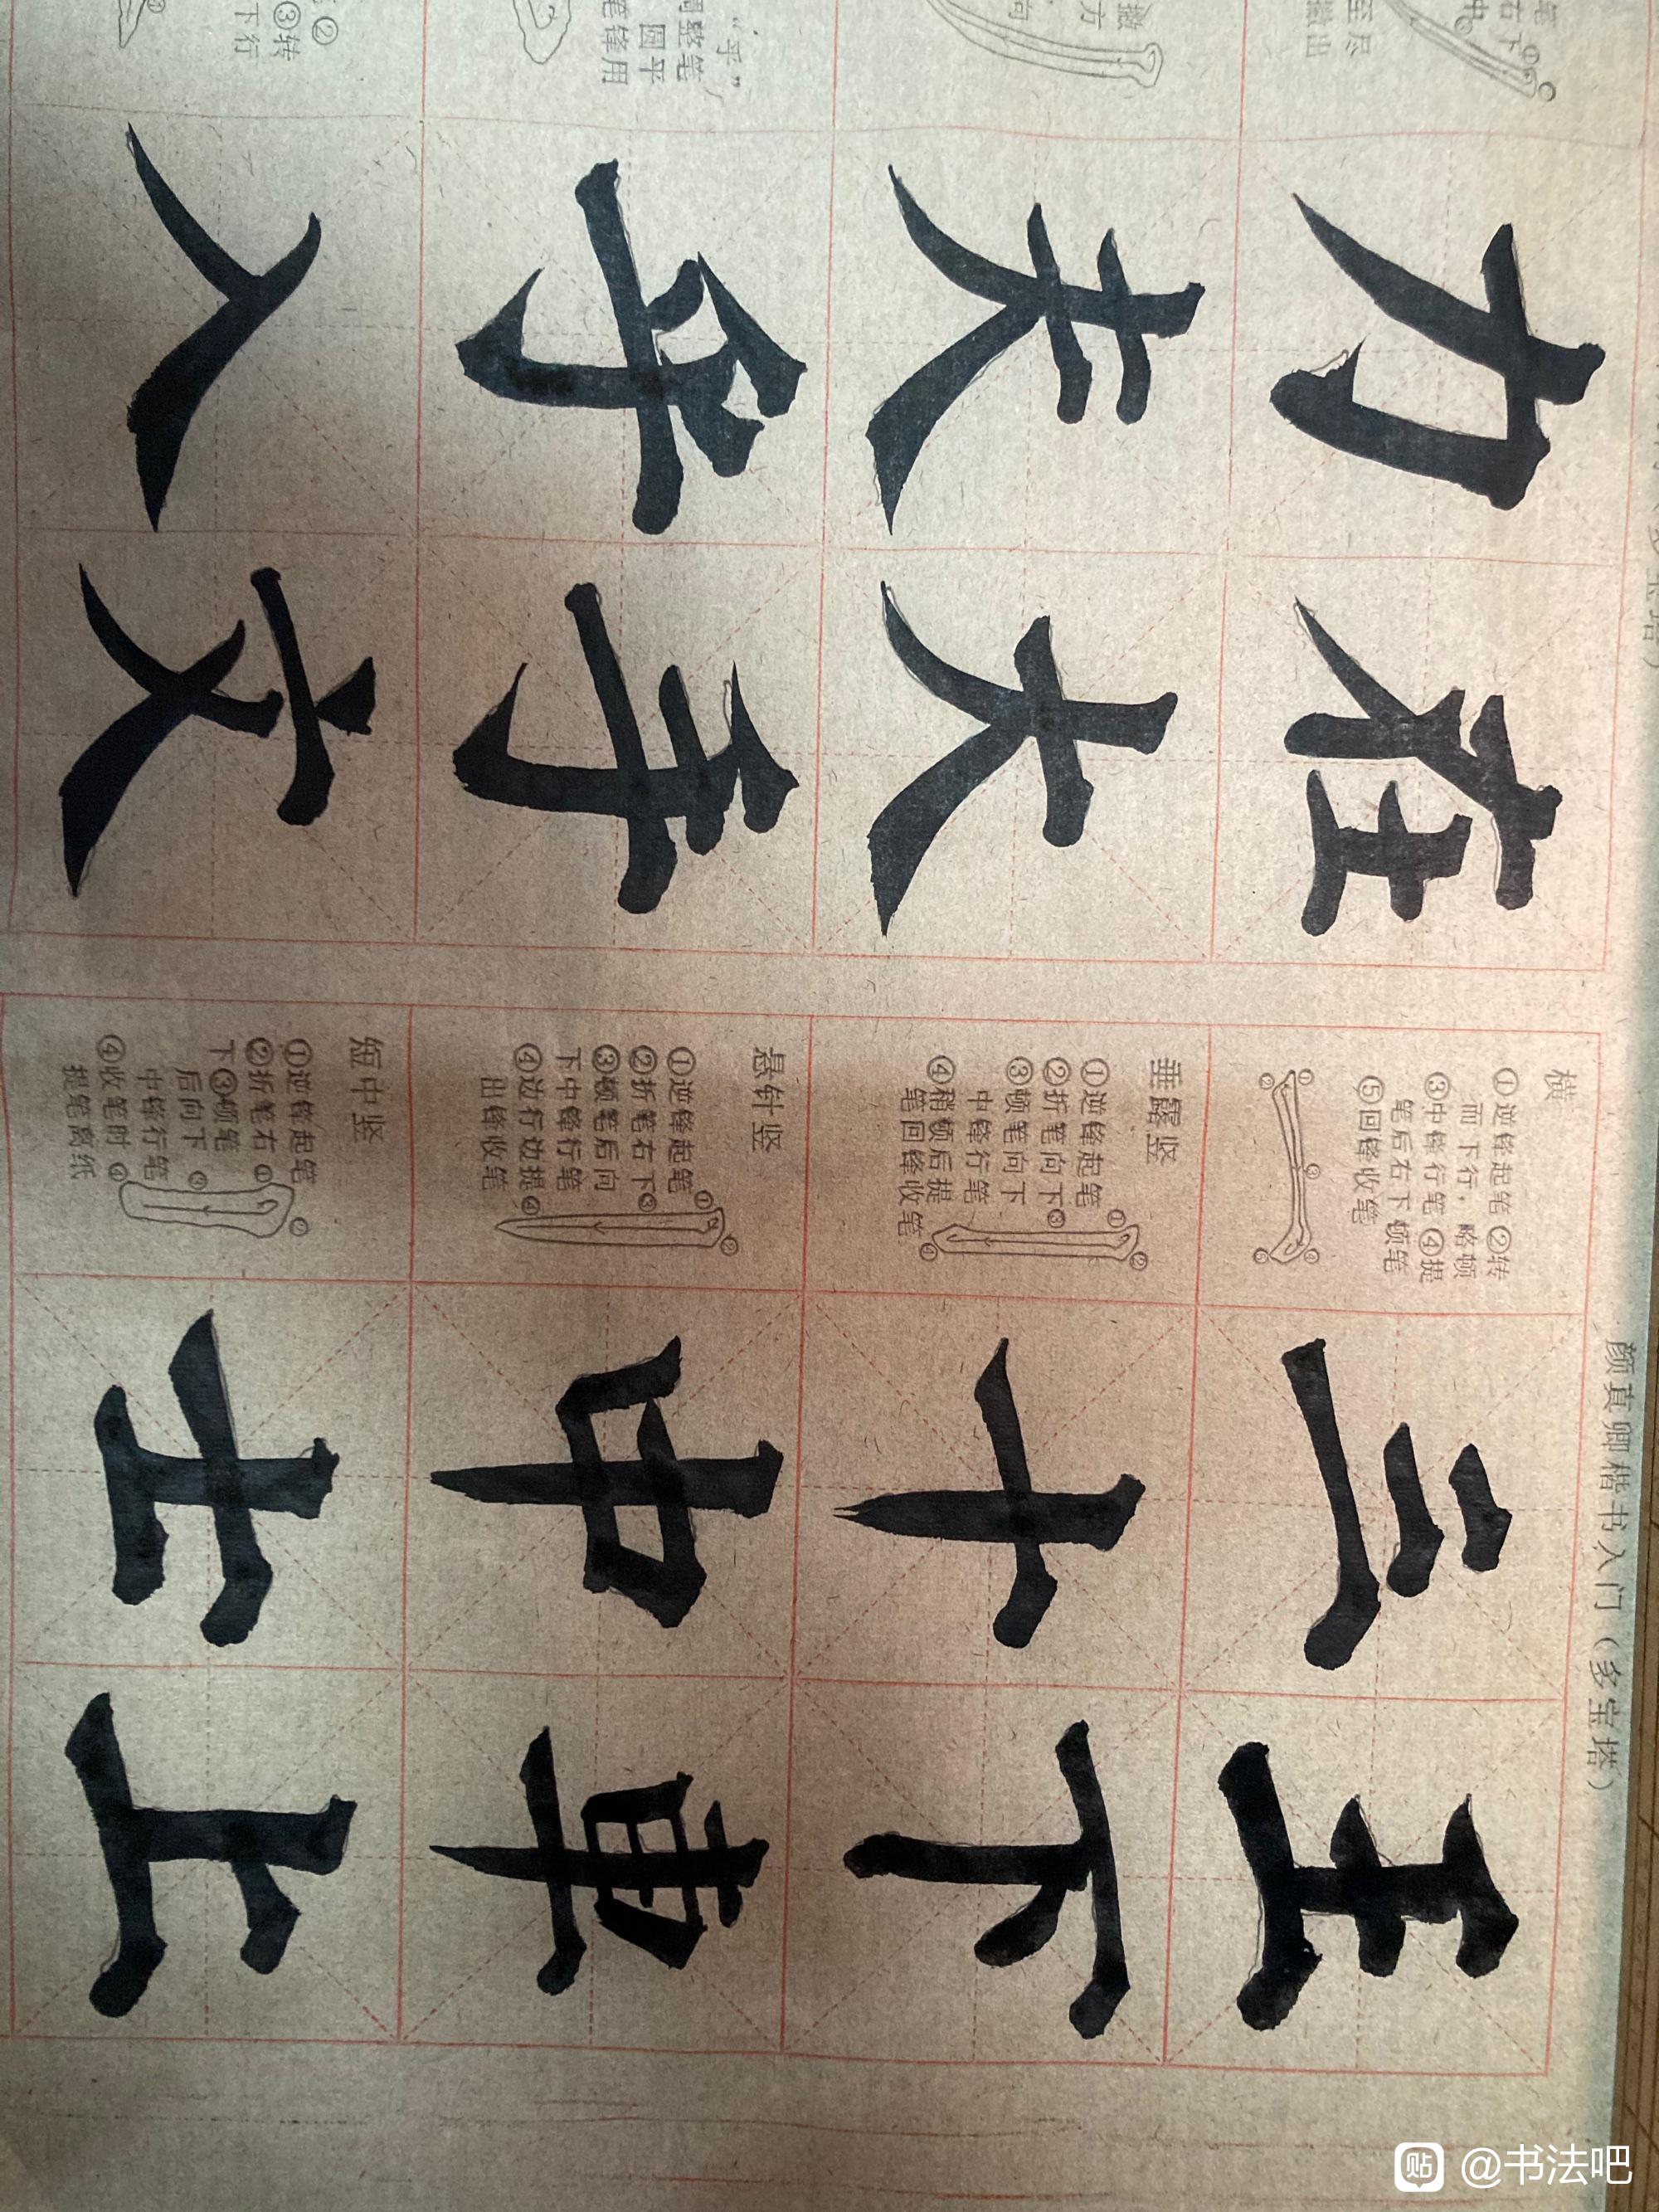 笔
右下
至尽
撇出
力 在
撇
方
向
夫 大
“乎”
调整笔
圆平
笔锋用
乎 手
②
③转
下行
入 文
颜真卿楷书入门（多宝塔）
横
①逆锋起笔 ②转
而下行，略顿
③中锋行笔 ④提
笔后右下顿笔
⑤回锋收笔
三 王
垂露竖
①逆锋起笔
②折笔向下
③顿笔向下
中锋行笔
④稍顿后提
笔回锋收笔
十 下
悬针竖
①逆锋起笔
②折笔右下
③顿笔后向
下中锋行笔
④边行边提
出锋收笔
中 車
短中竖
①逆锋起笔
②折笔右
下③顿笔
后向下
中锋行笔
④收笔时
提笔离纸
士 上
贴 @书法吧